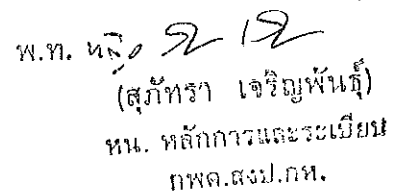 พ.ท. หญิง
(สุภัทรา เจริญพันธุ์)
หน. หลักการและระเบียบ
กพค.สงป.กห.